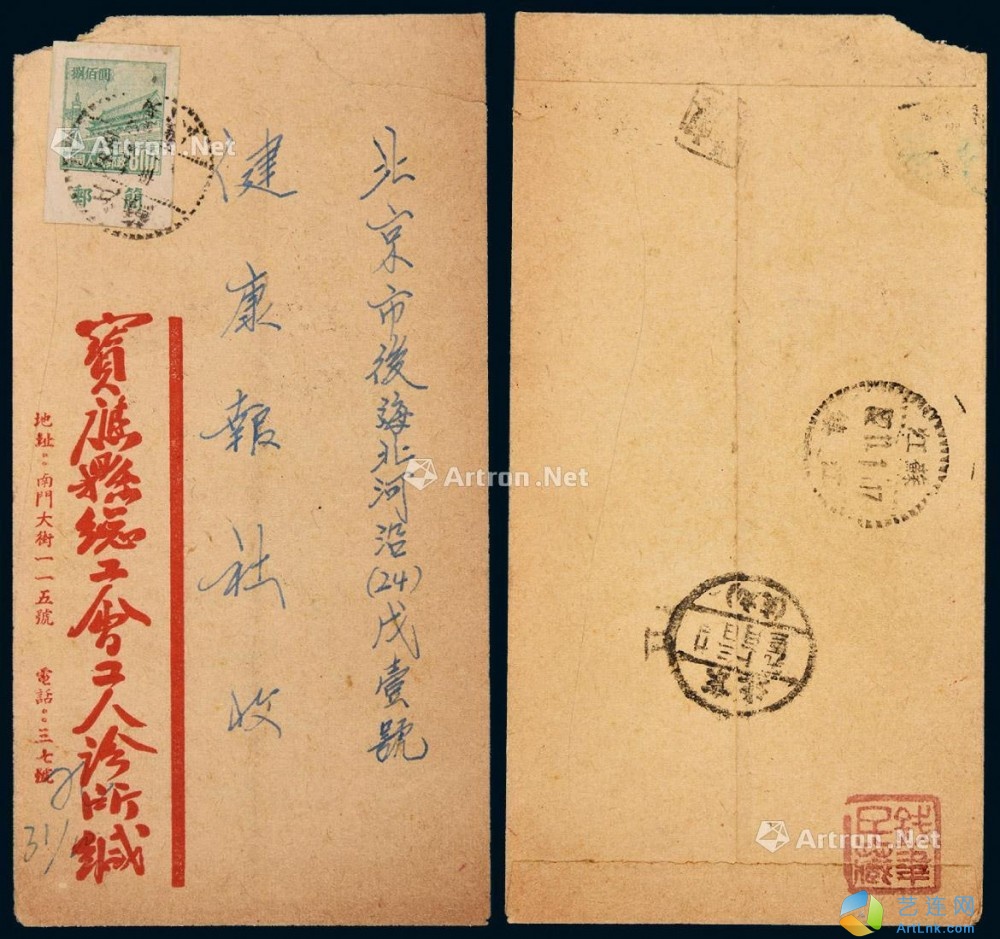 北京市後海北河沿(24)戊壹號
健康報社收
捌佰圓
800
郵簡
寶應縣總工會工人診所緘
地址:南門大街一一五號 電話:三七號
31/
江蘇
52.11.1.17
北京
Artron.Net
Artron.Net
Artron.Net
Artron.Net
Artron.Net
艺连网
ArtLnk.com